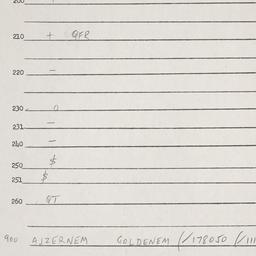 200
210 + QFR
220 –
230 0
231 –
240 –
250 $
251 $
260 QT
900 AJZERNEM GOLDENEM (/178050 (/111